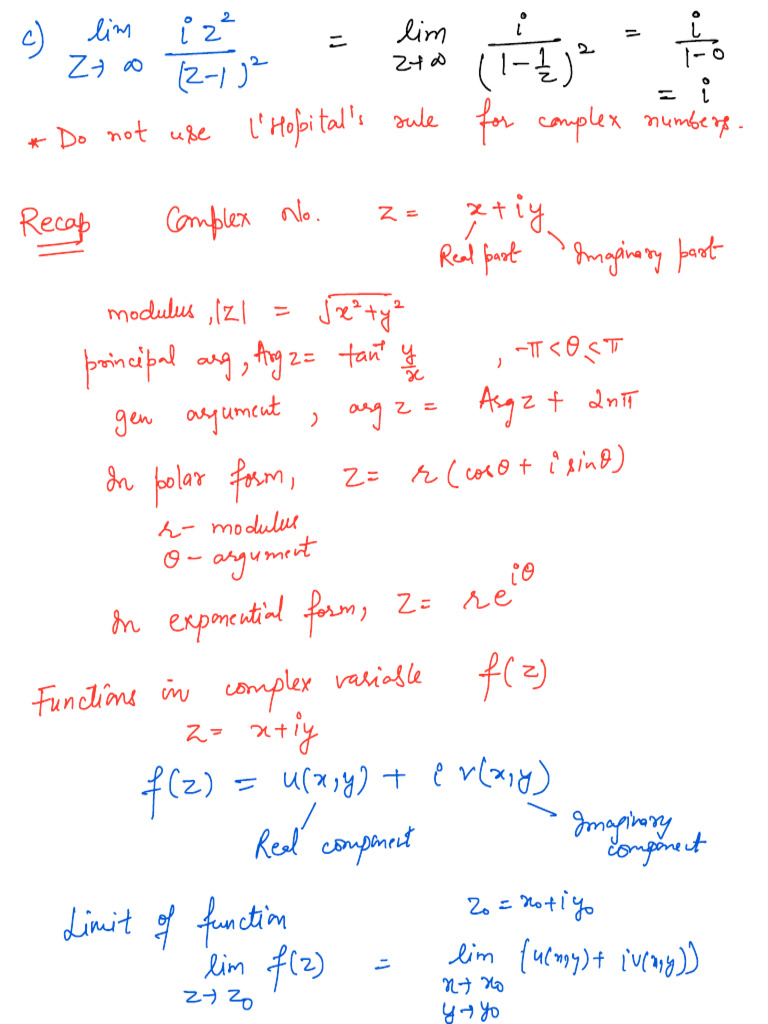 c) lim z→∞ i z² / (z-1)² = lim z→∞ i / (1 - 1/z)² = i / 1-0
= i
* Do not use l'Hopital's rule for complex numbers.
Recap Complex No. z = x + iy
Real part Imaginary part
modulus, |z| = √x²+y²
principal arg, Arg z = tan⁻¹ y/x , -π < θ ≤ π
gen argument, arg z = Arg z + 2nπ
In polar form, z = r (cosθ + i sinθ)
r - modulus
θ - argument
In exponential form, z = re^iθ
Functions in complex variable f(z)
z = x+iy
f(z) = u(x,y) + i v(x,y)
Real component Imaginary component
Limit of function z₀ = x₀+iy₀
lim z→z₀ f(z) = lim x→x₀ y→y₀ (u(x,y) + iv(x,y))